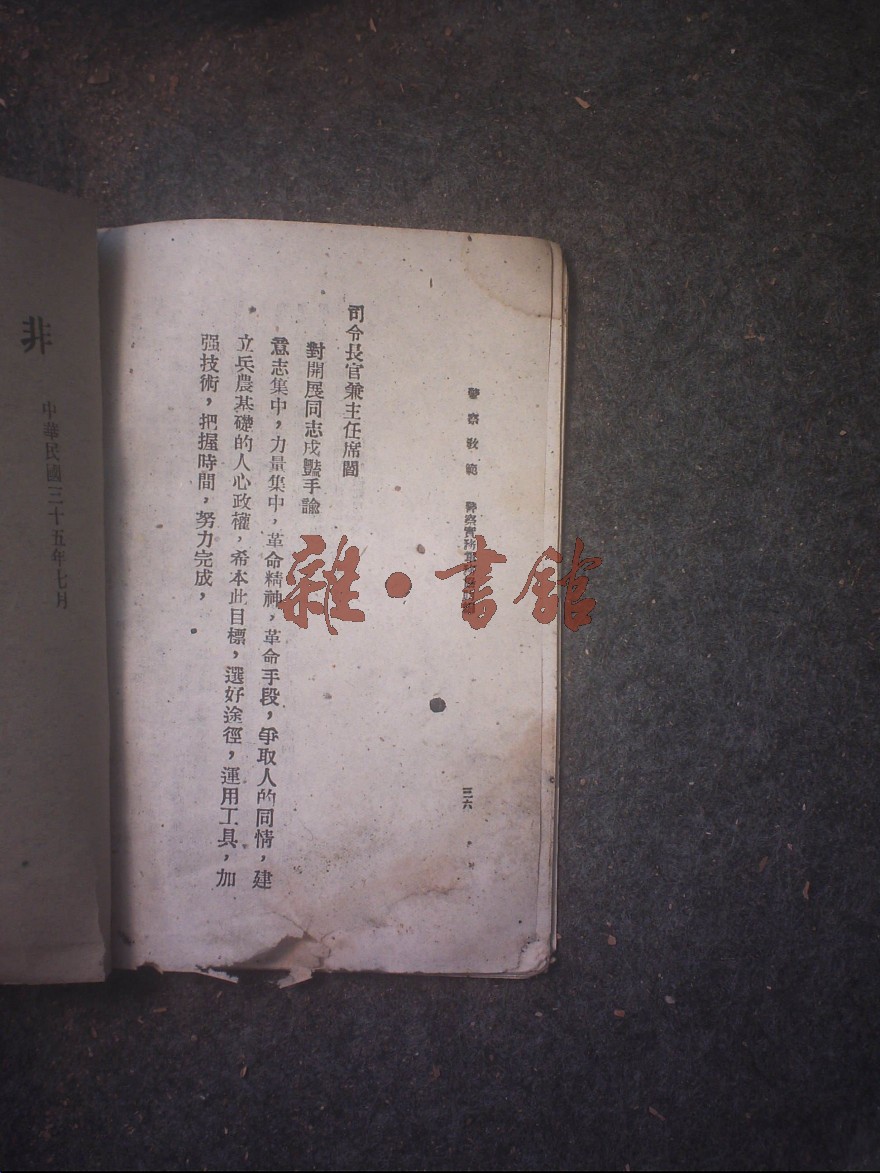 警察教範
三六
司令長官兼主任席閻
對開展同志戍豔手諭
意志集中，力量集中，革命精神，革命手段，爭取人的同情，建
立兵農基礎的人心政權，希本此目標，選好途徑，運用工具，加
强技術，把握時間，努力完成，
雜·書館
非
中華民國三十五年七月